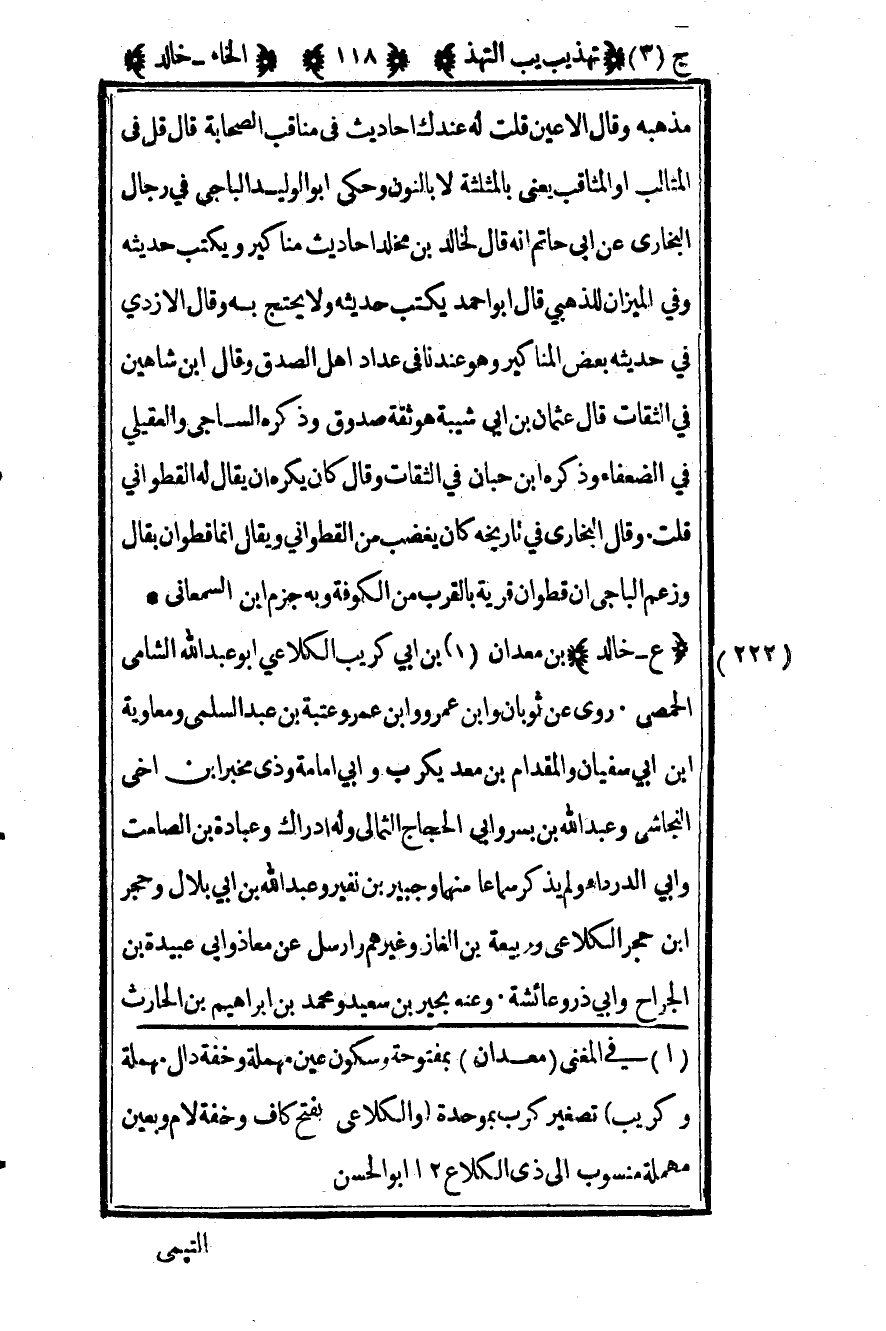 ج (٣) ﴿ تهذيب يب التهذ ﴾ ﴿ ١١٨ ﴾ ﴿ الخاء - خالد ﴾
مذهبه وقال الاعين قلت له عندك احاديث فى مناقب الصحابة قال قل فى
المثالب او المثاقب يعنى بالمثلثة لا بالنون وحكى ابو الوليد الباجى في رجال
البخارى عن ابى حاتم انه قال لخالد بن مخلد احاديث مناكير ويكتب حديثه
وفي الميزان للذهبي قال ابو احمد يكتب حديثه ولا يحتج به وقال الازدي
في حديثه بعض المناكير وهو عندنا فى عداد اهل الصدق وقال ابن شاهين
في الثقات قال عثمان بن ابي شيبة هو ثقة صدوق وذكره الساجى والعقيلي
في الضعفاء وذكره ابن حبان في الثقات وقال كان يكره ان يقال له القطواني
قلت . وقال البخارى في تاريخه كان يغضب من القطواني ويقال انما قطوان بقال
وزعم الباجى ان قطوان قرية بالقرب من الكوفة وبه جزم ابن السمعانى *
(٢٢٢) ﴿ ع - خالد ﴾ بن معدان (١) بن ابي كريب الكلاعي ابو عبدالله الشامى
الحمصي . روى عن ثوبان وابن عمرو وابن عمر وعتبة بن عبد السلمى ومعاوية
ابن ابي سفيان والمقدام بن معد يكرب و ابي امامة وذى مخبر ابن اخى
النجاشى وعبد الله بن بسر وابي الحجاج الثمالى وله ادراك وعبادة بن الصامت
وابي الدرداء ولم يذكر سماعا منهما وجبير بن نفير وعبد الله بن ابي بلال وحجر
ابن حجر الكلاعى وربيعة بن الغاز وغيرهم وارسل عن معاذ وابى عبيدة بن
الجراح وابي ذر وعائشة . وعنه بحير بن سعيد ومحمد بن ابراهيم بن الحارث
(١) فى المغنى (معدان) بمفتوحة وسكون عين مهملة وخفة دال مهملة
و كريب) تصغير كرب بموحدة (والكلاعى بفتح كاف وخفة لام وبعين
مهملة منسوب الى ذى الكلاع ١٢ ابو الحسن
التيمى